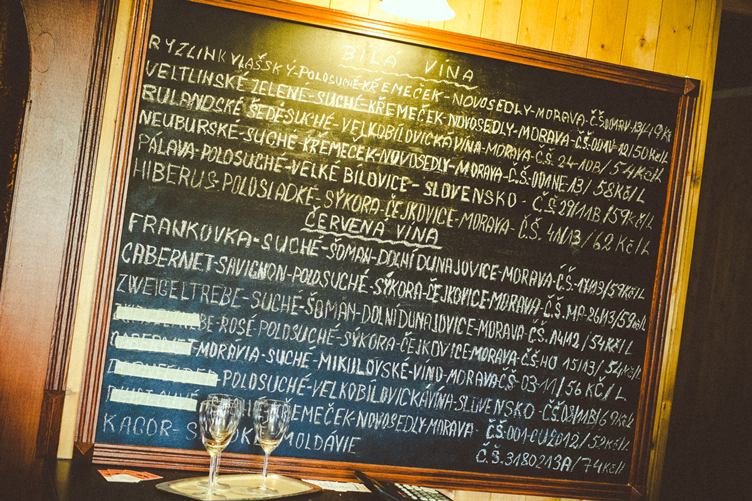 BÍLÁ VÍNA
RYZLINK VLAŠSKÝ-POLOSUCHÉ-KŘEMEČEK-NOVOSEDLY-MORAVA-Č.Š. 49Kč
VELTLINSKÉ ZELENÉ-SUCHÉ-KŘEMEČEK-NOVOSEDLY-MORAVA-Č.Š. 50Kč/L
RULANDSKÉ ŠEDÉ SUCHÉ-VELKOBÍLOVICKÁ VÍNA-MORAVA-Č.Š. 24-10B/54Kč/L
NEUBURSKÉ-SUCHÉ KŘEMEČEK-NOVOSEDLY-MORAVA-Č.Š.-001NE-13/58Kč/L
PÁLAVA-POLOSUCHÉ-VELKÉ BÍLOVICE-SLOVENSKO-Č.Š. 29/11B/59Kč/L
HIBERUS-POLOSLADKÉ-SÝKORA-ČEJKOVICE-MORAVA-Č.Š. 41/13/62Kč/L
ČERVENÁ VÍNA
FRANKOVKA-SUCHÉ-ŠOMAN-DOLNÍ DUNAJOVICE-MORAVA-Č.Š. 59Kč/L
CABERNET-SAVIGNON-POLOSUCHÉ-SÝKORA-ČEJKOVICE-MORAVA-Č.Š.-MP-26/13/59Kč/L
ZWEIGELTREBE-SUCHÉ-ŠOMAN-DOLNÍ DUNAJOVICE-MORAVA-Č.Š. A412/54Kč/L
BE-ROSÉ-POLOSUCHÉ-SÝKORA-ČEJKOVICE-MORAVA-Č.Š. HO 15/13/54Kč/L
-MORÁVIA-SUCHÉ-MIKULOVSKÉ VÍNO-MORAVA-Č.Š.-03-11/56KČ/L
-POLOSUCHÉ-VELKOBÍLOVICKÁ VÍNA-SLOVENSKO-Č.Š. 69Kč/L
KŘEMEČEK-NOVOSEDLY-MORAVA-Č.Š.-001-CU2012/59Kč/L
KAGOR- MOLDÁVIE Č.Š. 3180213A/74Kč/L